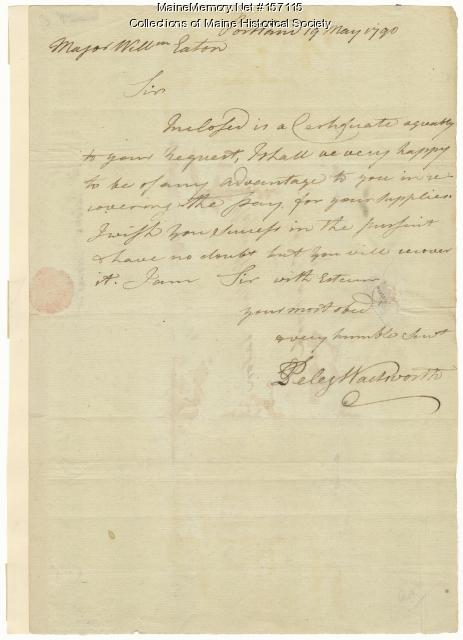 MaineMemory.Net #157115
Collections of Maine Historical Society
Portland 19 May 1790
Major Willm Eaton
Sir
Inclosed is a Certificate agreeably
to your request, I shall be very happy
to be of any advantage to you in re
covering the pay, for your supplies
I wish you success in the pursuit
& have no doubt but you will recover
it. I am Sir with Esteem
your most obed
& very humble Servt
Peleg Wadsworth